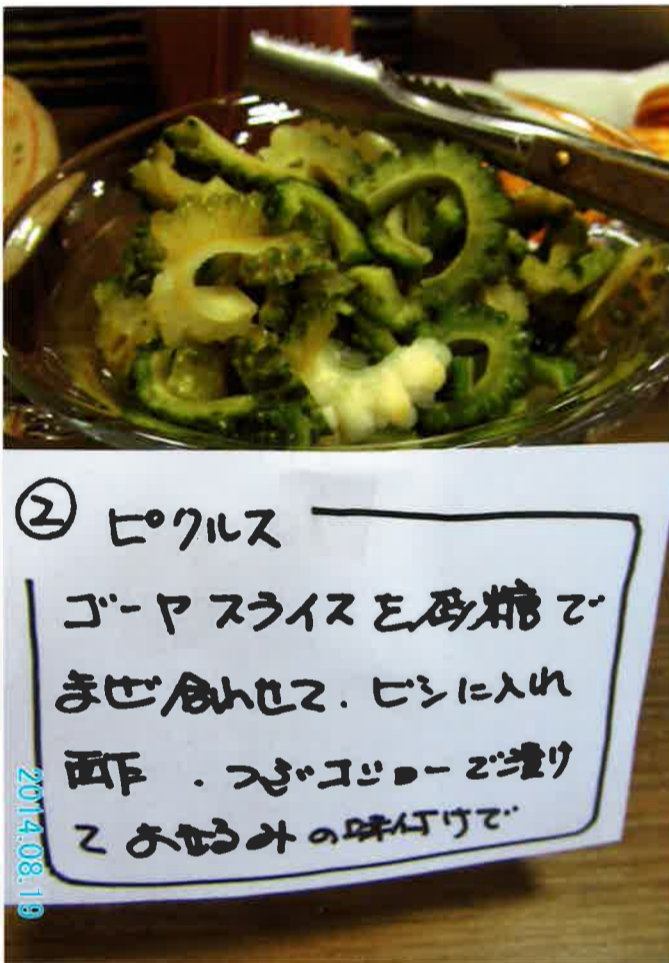 ② ピクルス
ゴーヤ スライスを砂糖で
まぜ合わせて. ビンに入れ
酢 . つぶコショーで漬け
て お好みの味付けで
2014.08.19